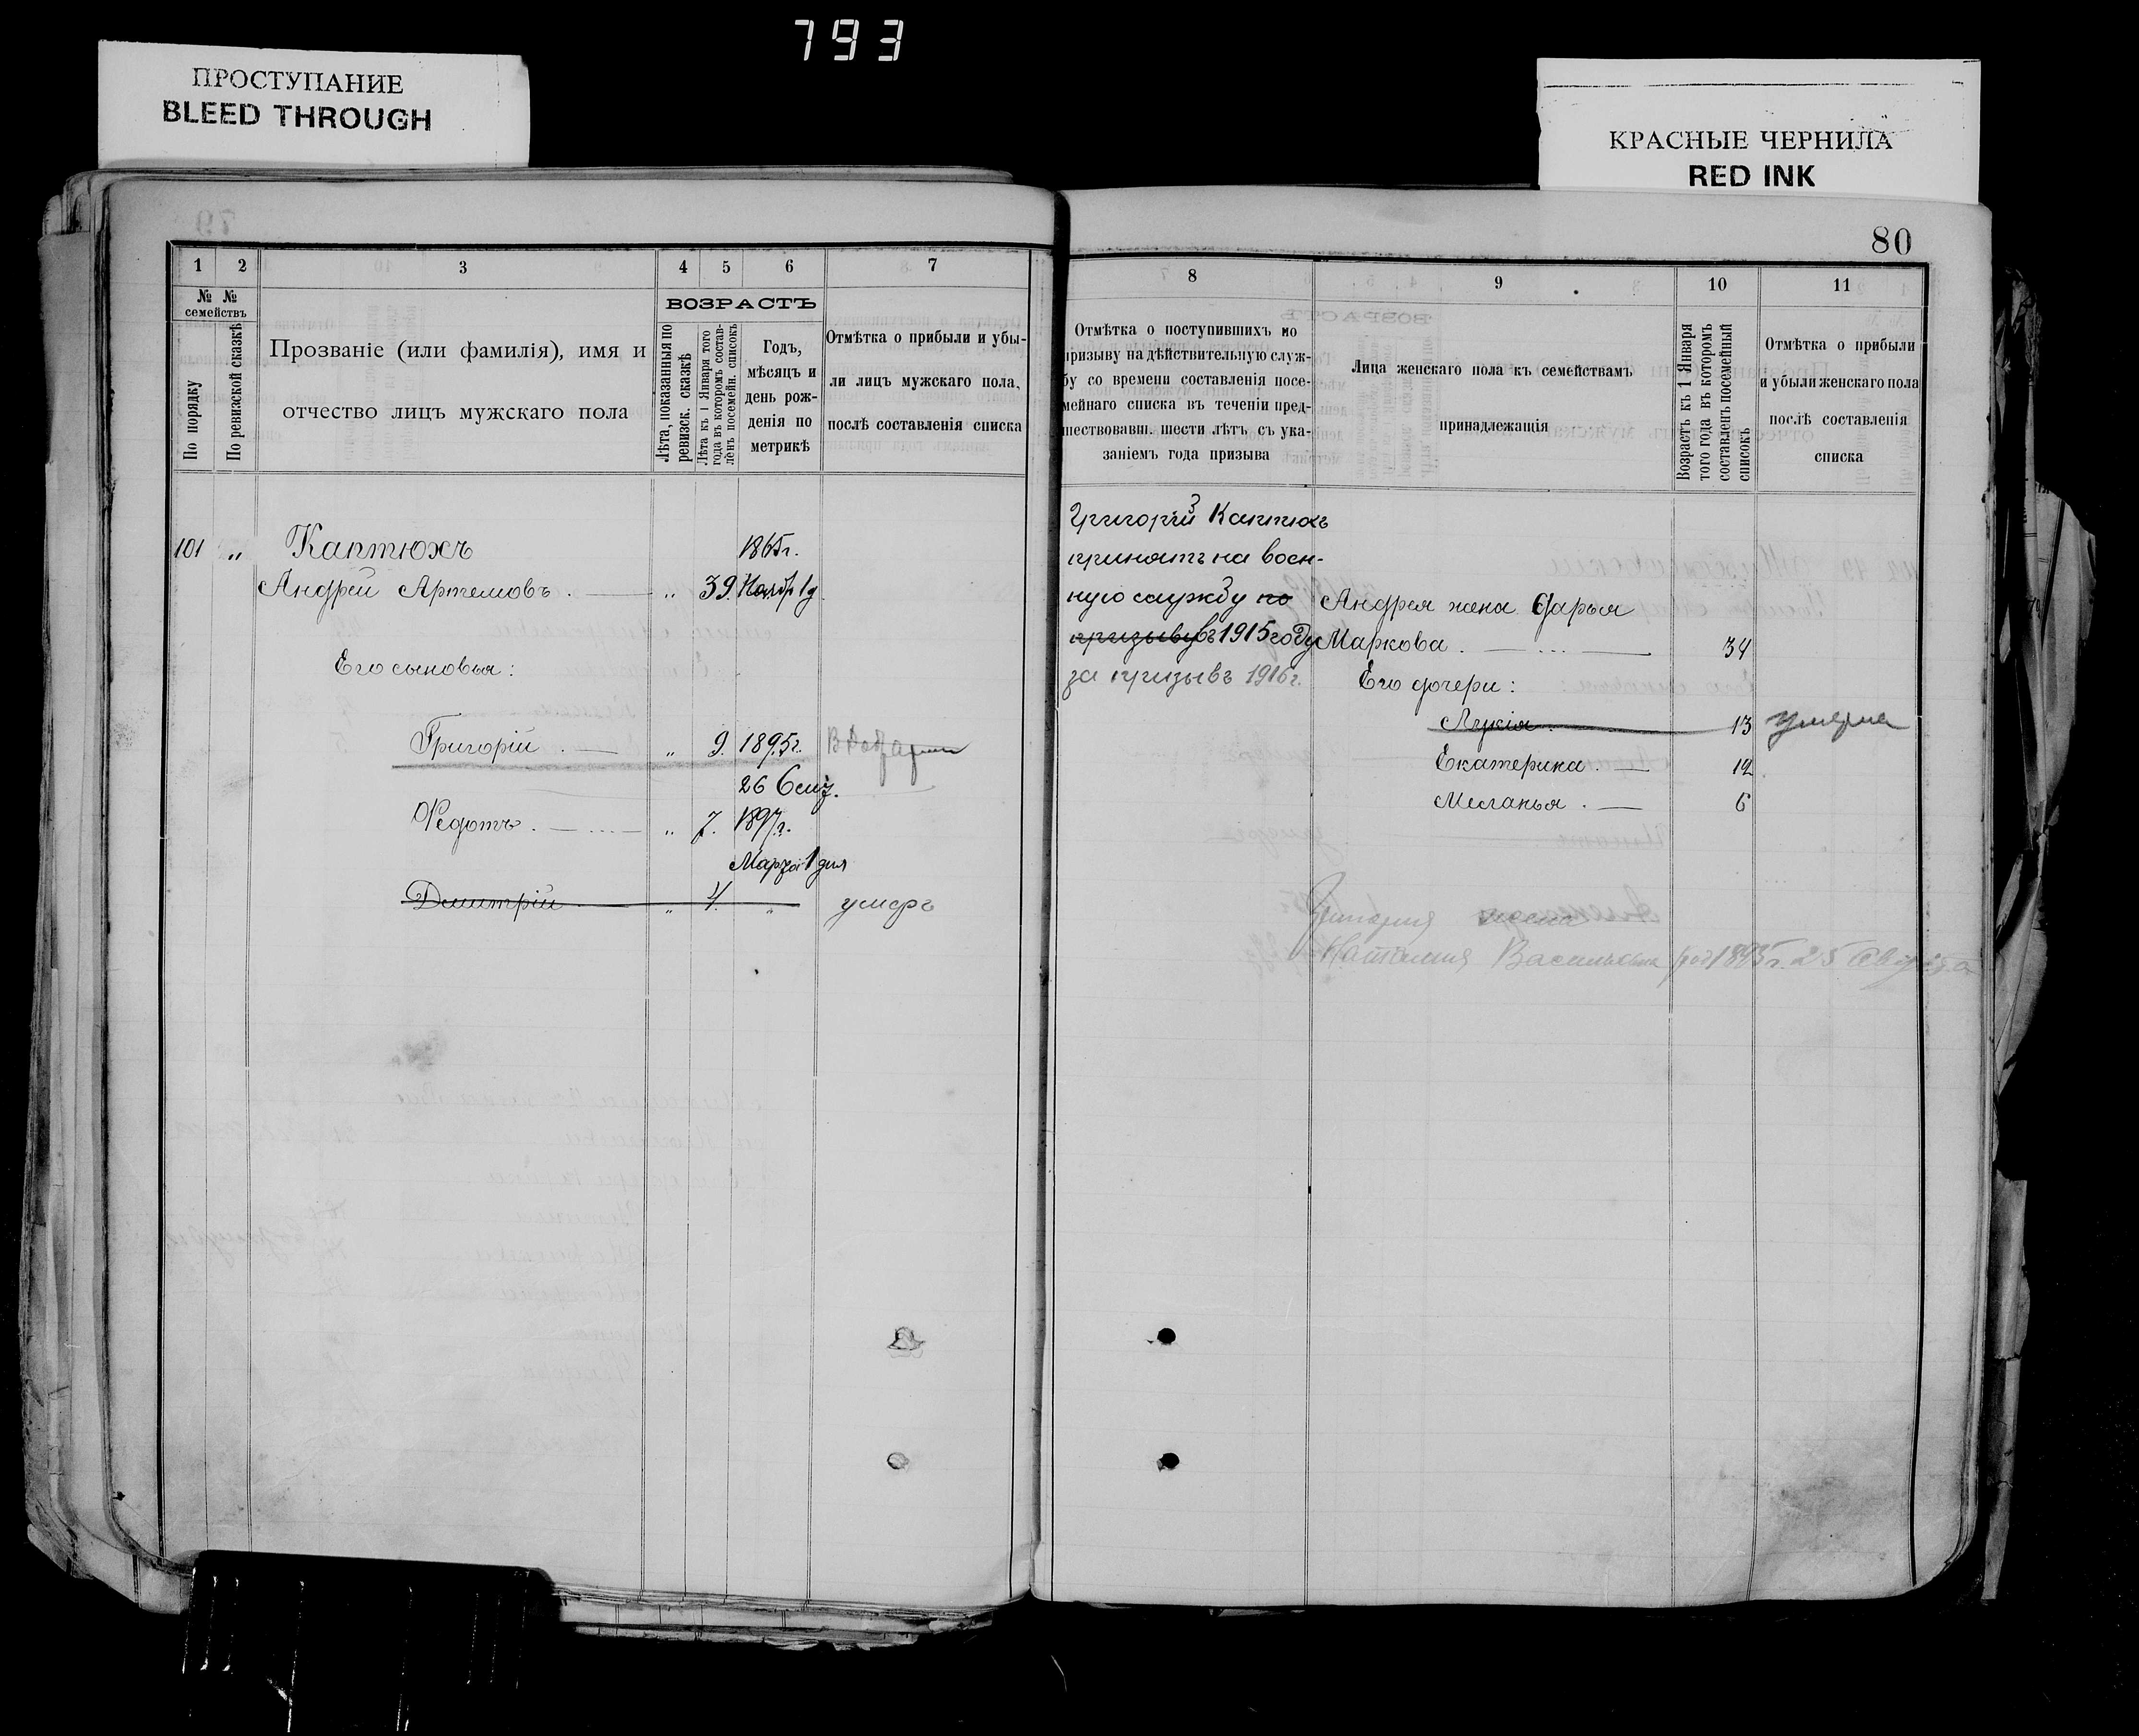 793
ПРОСТУПАНИЕ
BLEED THROUGH
КРАСНЫЕ ЧЕРНИЛА
RED INK
80
1 2 3 4 5 6 7
№ № семействъ
По порядку
По ревизской сказкѣ
Прозваніе (или фамилія), имя и
отчество лицъ мужскаго пола
ВОЗРАСТЪ
Лѣта, показанныя по
ревизск. сказкѣ
Лѣта къ 1 Января того
года въ которомъ состав-
ленъ посемейн. списокъ
Годъ,
мѣсяцъ и
день рож-
денія по
метрикѣ
Отмѣтка о прибыли и убы-
ли лицъ мужскаго пола,
послѣ составленія списка
101 „ Каптюхъ 1865г.
Андрей Артемовъ „ 39
Его сыновья:
Григорій „ 9. 1895г.
26
Федотъ „ 7. 1897г.
Марта 1 дня
Дмитрій „ 4. „ умеръ
8 9 10 11
Отмѣтка о поступившихъ по
призыву на дѣйствительную служ-
бу со времени составленія посе-
мейнаго списка въ теченіи пред-
шествовавш. шести лѣтъ съ ука-
заніемъ года призыва
Лица женскаго пола къ семействамъ
принадлежащія
Возрастъ къ 1 Января
того года въ которомъ
составленъ посемейный
списокъ
Отмѣтка о прибыли
и убыли женскаго пола
послѣ составленія
списка
Григорій Каптюхъ
принятъ на воен-
ную службу по
призыву въ 1915 году
за призывъ 1916г.
Андрея жена Дарья
Маркова 34
Его дочери:
Лукія 13 умерла
Екатерина 12
Меланья 6
Григорія жена
Наталия Васильевна род 1895г. 25